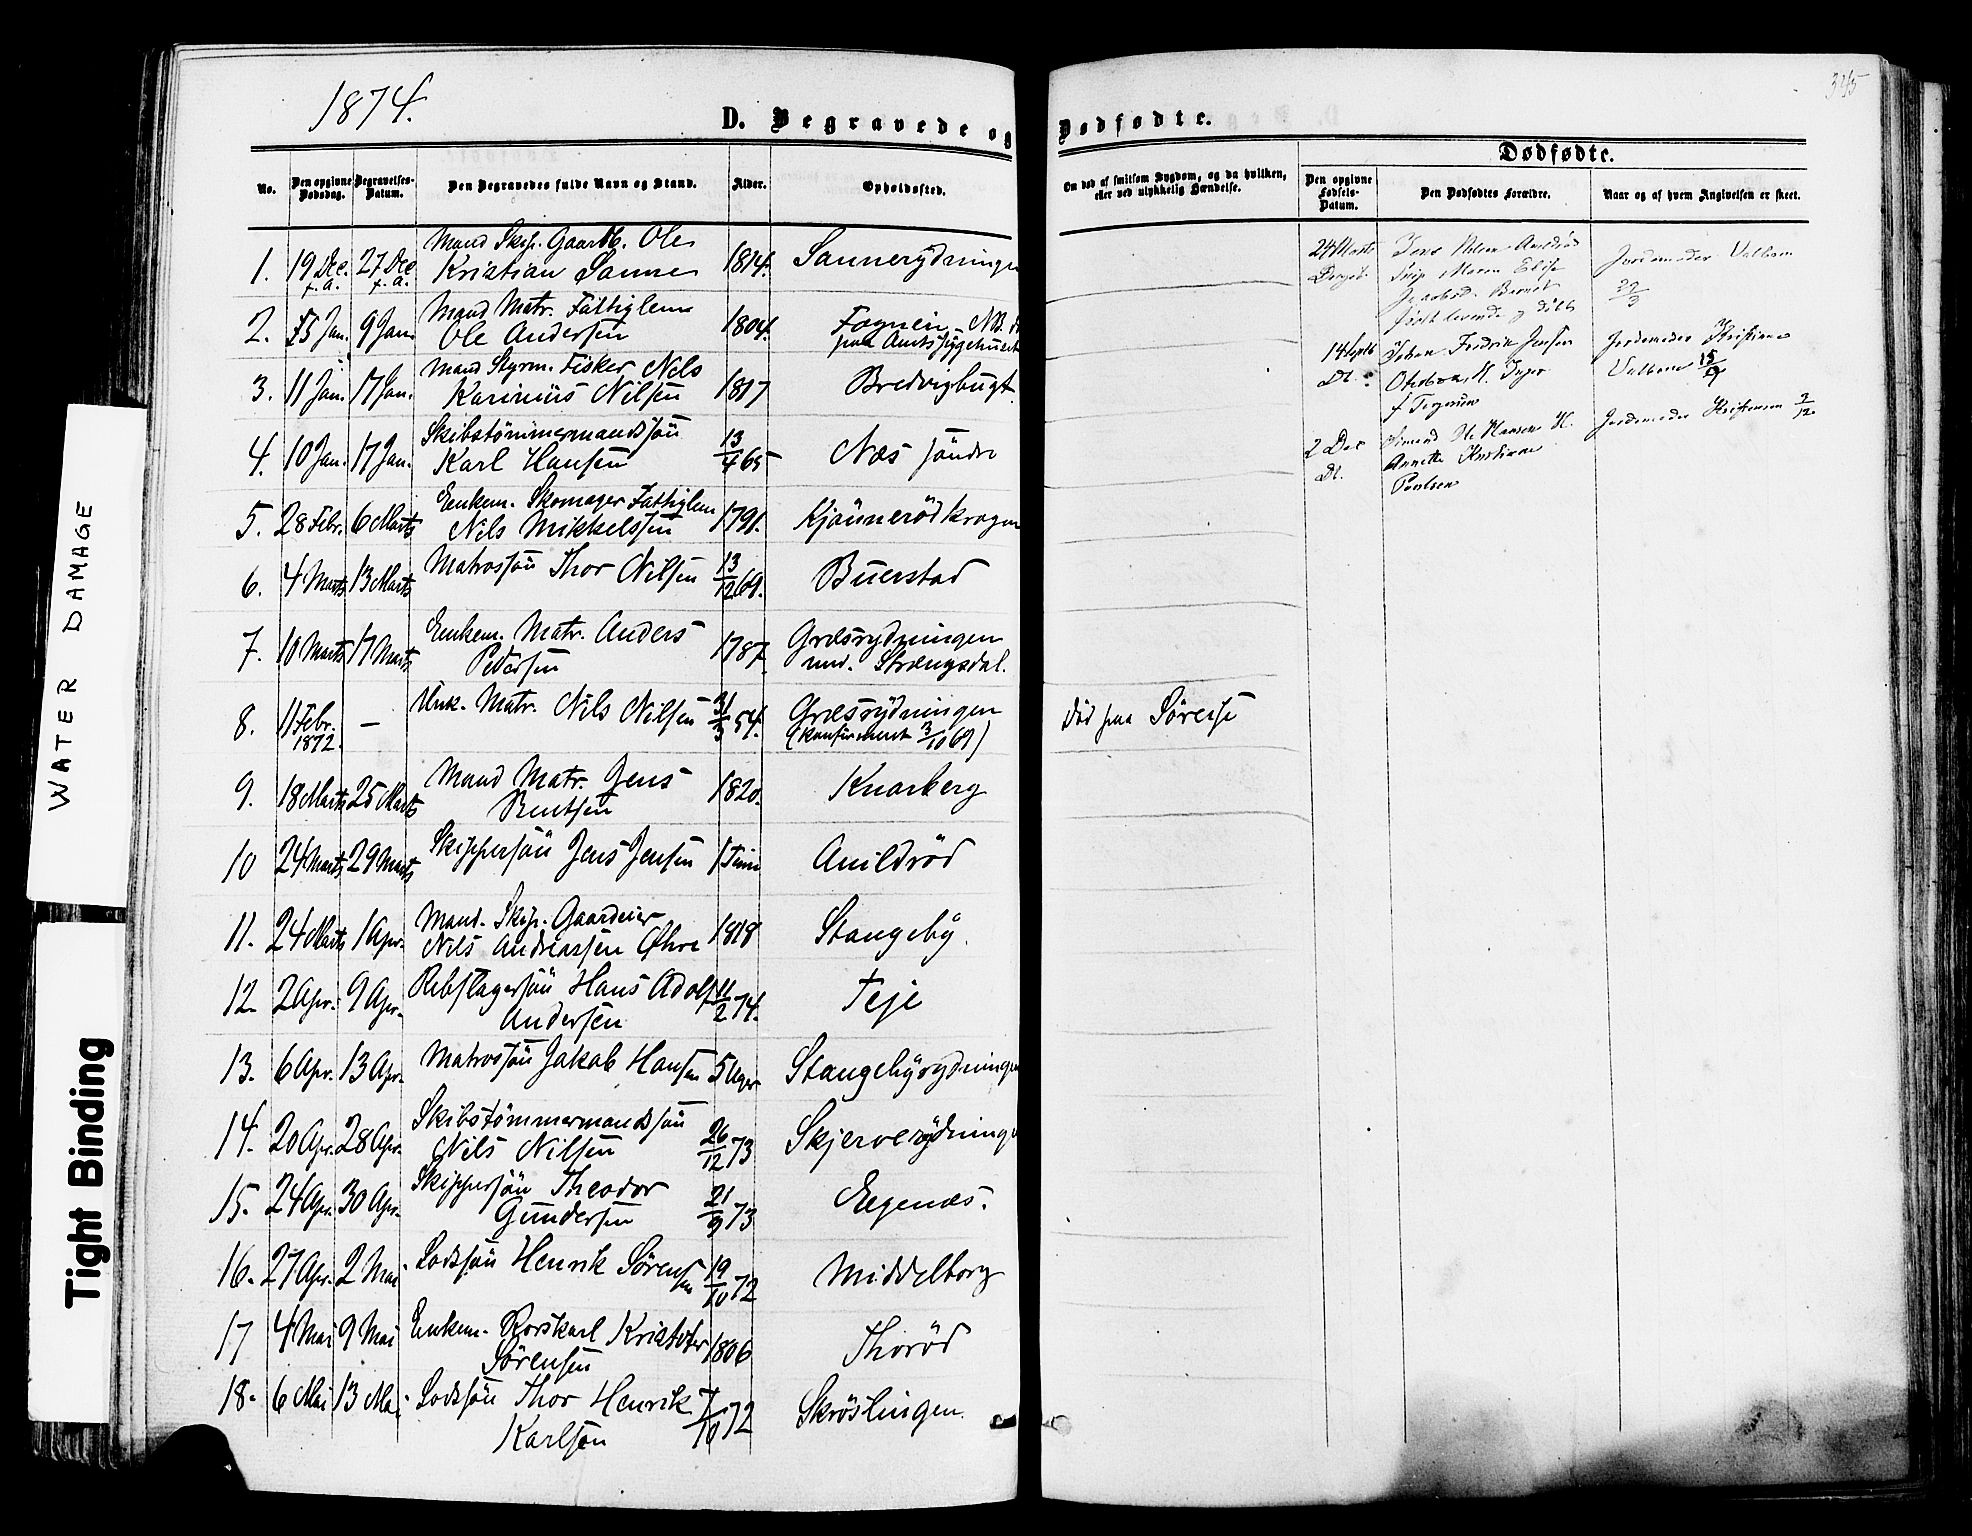 1874.
345
D. Begravede og Dødfødte.
Dødfødte.
No.
Den opgivne Dødsdag.
Begravelses-Datum.
Den Begravedes fulde Navn og Stand.
Alder.
Opholdssted.
Om død af smitsom Sygdom, og da hvilken, eller ved ulykkelig Hændelse.
Den opgivne Fødsels-Datum.
Den Dødfødtes Forældre.
Naar og af hvem Angivelsen er skeet.
1. 19 Dec. f. A. 27 Dec f. A. Mand Skip. Gaardb. Ole
Kristian Sanne 1814. Sannerydningen
2. 5 Jan. 9 Jan. Mand Matr. Fattiglem
Ole Andersen 1804. Fognen NB. død
paa Amtssygehuset
3. 11 Jan. 17 Jan. Mand Styrm. Fisker Nels
Karinius Nilsen 1817 Bredvigbugt.
4. 10 Jan. 17 Jan. Skibstömmermandssön
Karl Hansen 13/4 65 Næs söndre
5. 28 Febr. 6 Marts Enkem. Skomager Fattiglem
Nils Mikkelssen 1791. Kjönnerödkragen
6. 4 Marts 13 Marts Matrossön Thor Nilsen 13/12 69. Buerstad
7. 10 Marts 17 Marts Enkem. Matr. Anders
Pedersen 1787. Græsrydningen
und. Strængsdal.
8. 11 Febr. 1872. — Unk. Matr. Nils Nilsen 31/3 54. Græsrydningen
(konfirmeret 3/10 69) Död paa Söreise
9. 18 Marts 25 Marts Mand Matr. Jens
Berntsen 1820. Knarberg
10 24 Marts 29 Marts Skippersön Jens Jensen 1 Time Anildröd
11. 24 Marts 1 Apr. Mand. Skip. Gaardeier
Nils Andreassen Øhre 1818 Stangeby.
12. 2 Apr. 9 Apr. Rebslagersön Hans Adolf
Andersen 11/2 74. Teje
13. 6 Apr. 13 Apr. Matrossön Jakob Hansen 5 Uger Stangebyrydningen
14. 20 Apr. 28 Apr. Skibstömmermandssön
Nils Nilsen 26/12 73 Skjerverydningen
15. 24 Apr. 30 Apr. Skippersön Theodor
Gundersen 21/9 73 Ægenæs.
16. 27 Apr. 2 Mai Lodssön Henrik Sörensen 19/10 72 Middelborg
17 4 Mai 9 Mai Enkem. Rorskarl Kristofer
Sörensen 1806 Thoröd
18. 6 Mai 13 Mai Lodssön Thor Henrik
Karlsen 7/10 72 Skröslingen.
24 Marts Jens Nilsen Anildröd
Skip. Maren Elise
Jakobsd. Barnet
födt levende og döbt
Jordemoder Valborn
27/3
14 Septb Johan Fredrik Jensen
Jordemoder Kristiane
Valborn 15/9
2 Dec Hansen
Annette Kristiane
Paulsen
Jordemoder Kristensen 2/12
WATER DAMAGE
Tight Binding